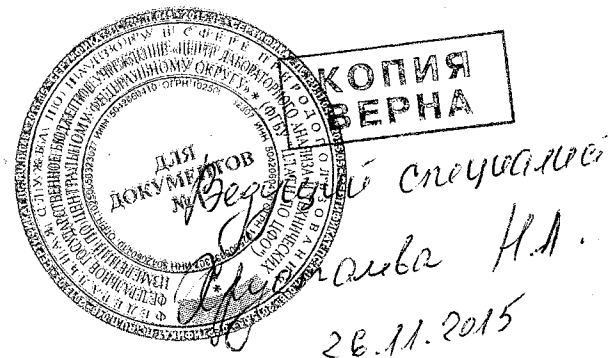 ФЕДЕРАЛЬНАЯ СЛУЖБА ПО НАДЗОРУ В СФЕРЕ ПРИРОДОПОЛЬЗОВАНИЯ
ФЕДЕРАЛЬНОЕ ГОСУДАРСТВЕННОЕ БЮДЖЕТНОЕ УЧРЕЖДЕНИЕ «ЦЕНТР ЛАБОРАТОРНОГО АНАЛИЗА И ТЕХНИЧЕСКИХ
ИЗМЕРЕНИЙ ПО ЦЕНТРАЛЬНОМУ ФЕДЕРАЛЬНОМУ ОКРУГУ»
ДЛЯ
ДОКУМЕНТОВ
№
КОПИЯ
ВЕРНА
Ведущий специалист
Н.А.
26.11.2015